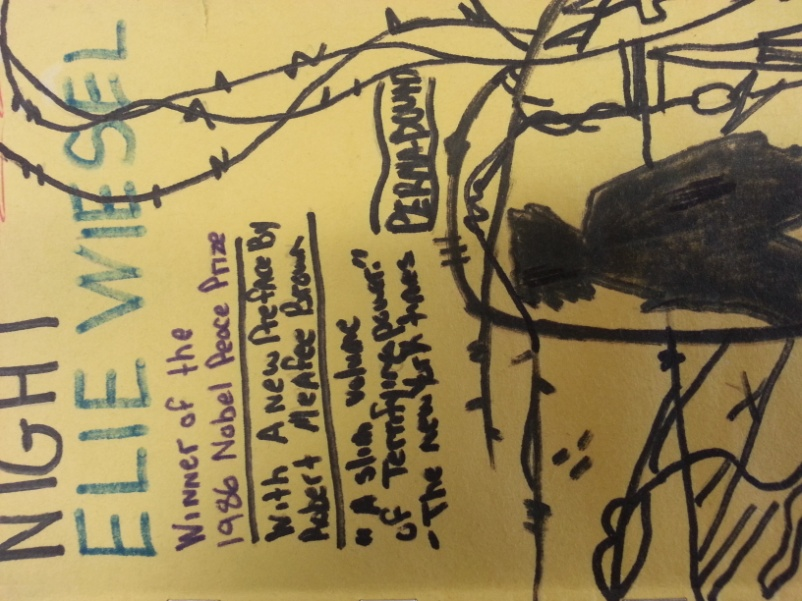 NIGHT
ELIE WIESEL
Winner of the
1986 Nobel Peace Prize
With A new Preface By
Robert McAfee Brown
"A slim volume
of Terrifying power."
-The new York times
PERMA-BOUND